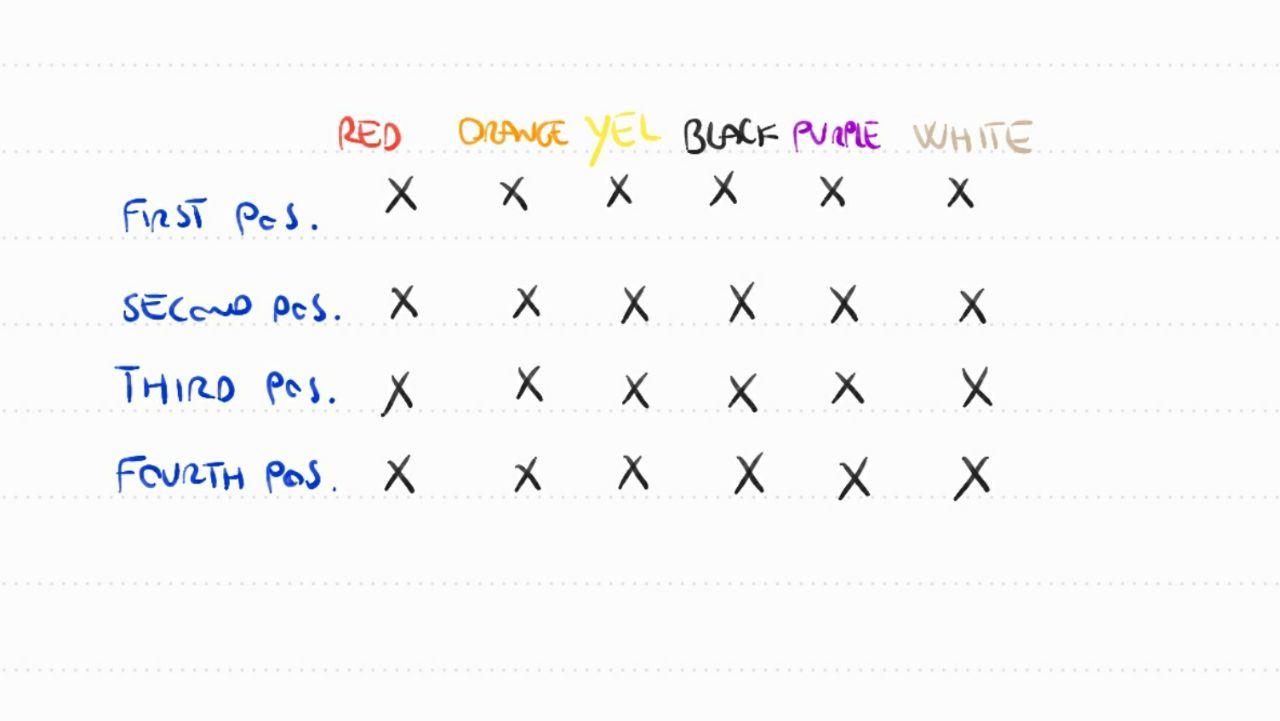 RED ORANGE YEL BLACK PURPLE WHITE
FIRST POS. X X X X X X
SECOND POS. X X X X X X
THIRD POS. X X X X X X
FOURTH POS. X X X X X X